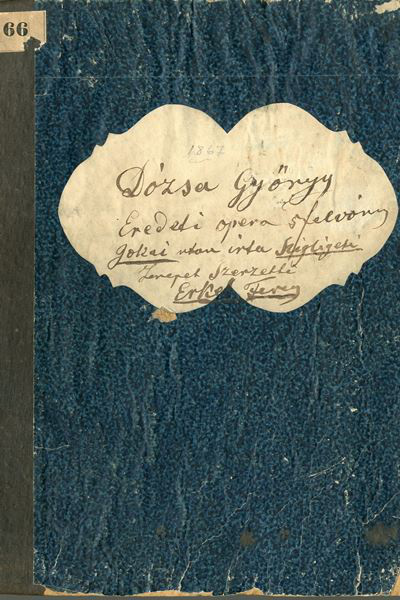 66
1867
Dózsa György
Eredeti opera 5 felvony
Jokai utan irta Szigligeti
Zenejet Szerzetté
Erkel Ferenz